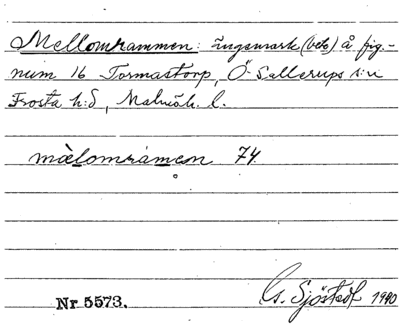 Mellomrammen: ängsmark (bete) å fig.-
num 16 Tormastorp, Ö. Sallerups s:n
Frosta h:d, Malmöh. l.
mä̀lomràmen 74.
Nr 5573. G. Sjöstedt 1940